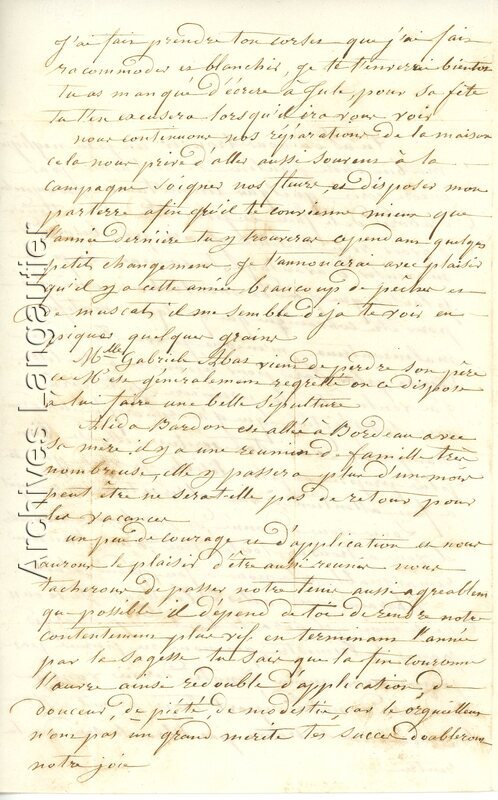 J'ai fait prendre ton corset que j'ai fait
racommoder et blanchir, je te l'enverrai bientot
tu as manqué d'écrire à Jule, pour sa fête
tu t'en excusera lorsqu'il ira vous voir
nous continuons nos réparations de la maison
cela nous prive d'aller aussi souvent à la
campagne soigner nos fleurs et disposer mon
parterre afin qu'il te convienne mieux que
l'année dernière tu y trouveras cependant quelques
petits changemens, je t'annoncerai avec plaisir
qu'il y a cette année beaucoup de pêches et
de muscats il me semble deja te voir en
piquer quelques grains
Mlle Gabriele Abas vient de perdre son père
ce Mr est généralement regretté on ce dispose
a lui faire une belle sépulture
Alida Bardon est allé à Bordeau avec
sa mère il y a une reunion de famille très
nombreuse, elle y passera plus d'un mois
peut être ne serat-elle pas de retour pour
les vacances
un peu de courage et d'application et nous
aurons le plaisir d'être aussi reunis nous
tacherons de passer notre tems aussi agreablem
que possible il depend de toi de rendre notre
contentement plus vif en terminant l'année
par la sagesse tu sais que la fin couronne
l'œuvre ainsi redouble d'application, de
douceur, de piété, de modestie, car les orgueilleux
n'ont pas un grand merite tes succes doubleront
notre joie
Archives Langautier